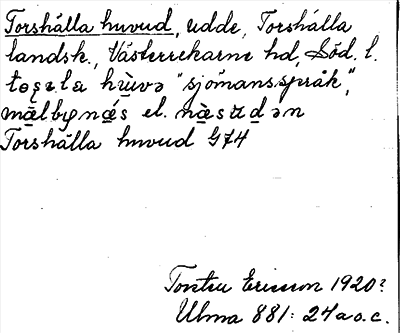 Torshälla huvud, udde, Torshälla
landsk., Västerrekarne hd, Söd. l.
toşala hùvə "sjömansspråk",
mälbynä́s el. nàsudən
Torshälla huvud G74
Torsten Ericsson 1920?
Ulma 881: 24 a o.c.